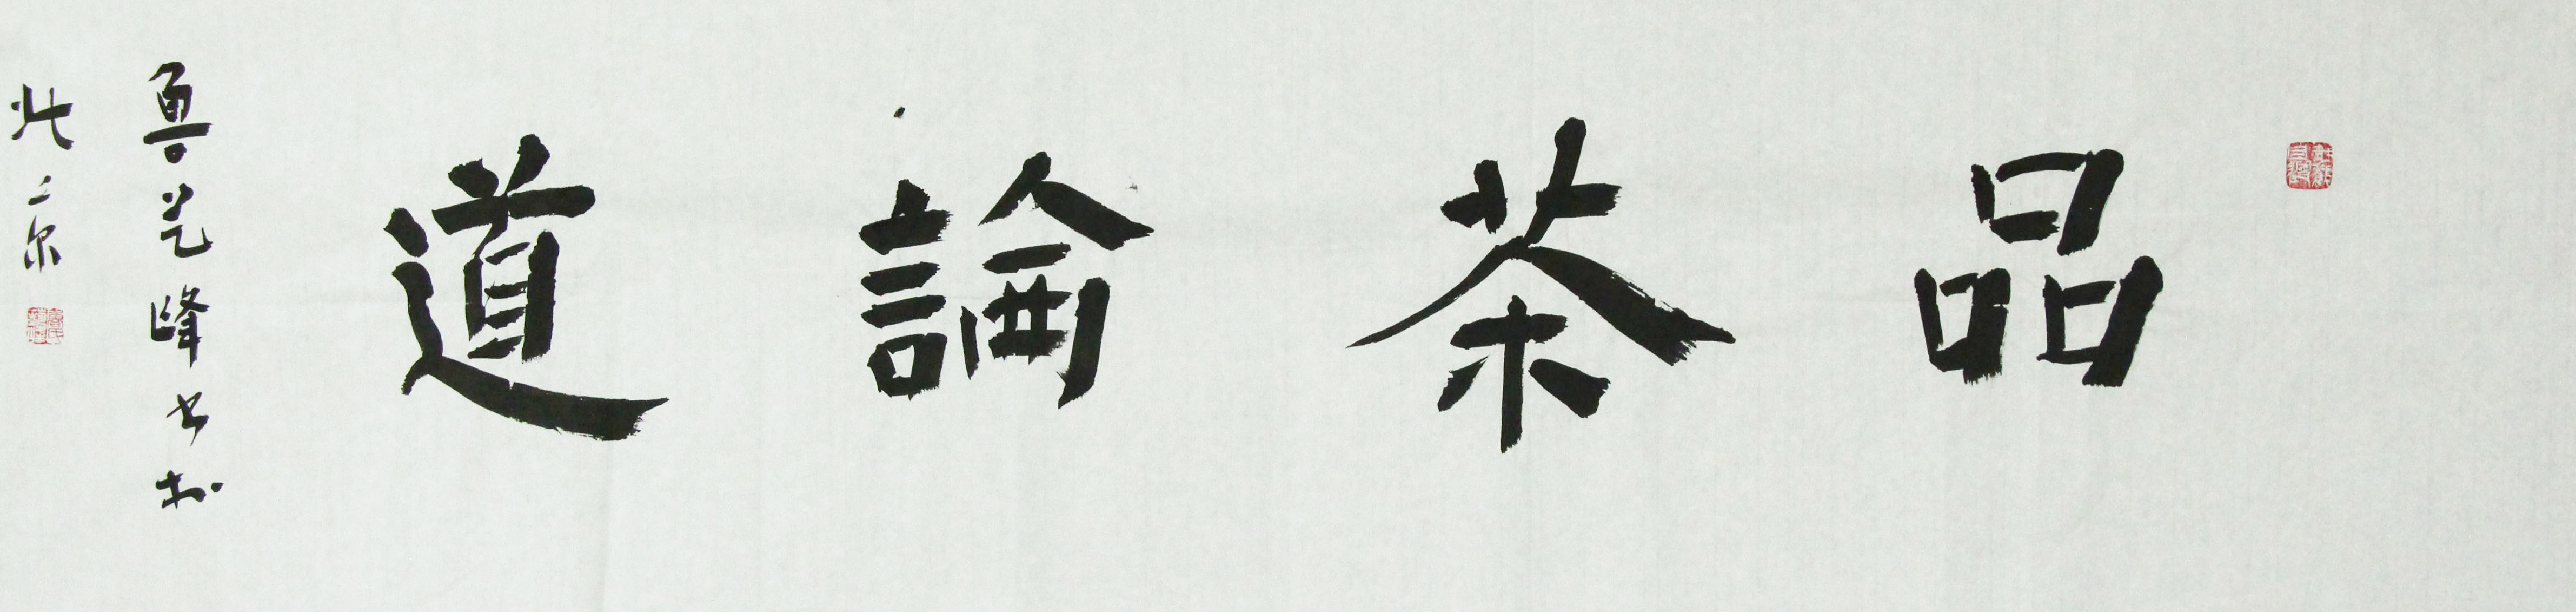 品茶論道
魯艺峰书於
北京